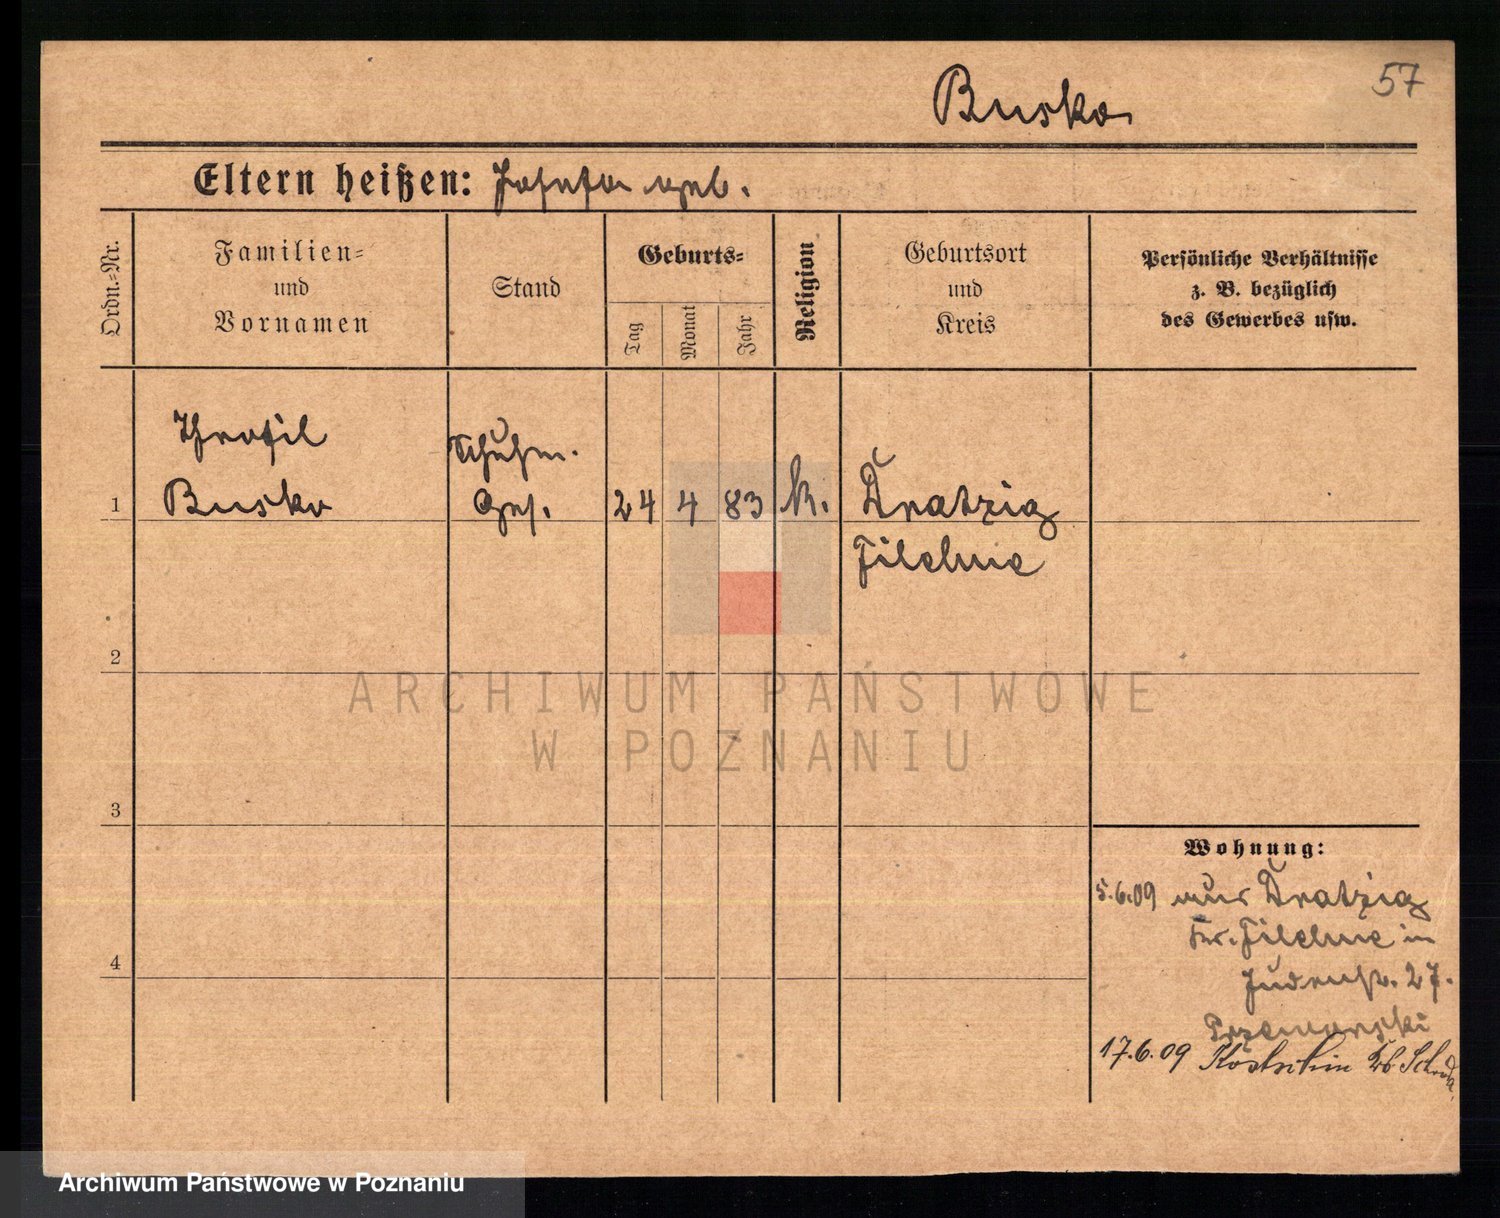 57
Busko
Eltern heißen: Josefa geb.
Ordn.=Nr.
Familien=
und
Vornamen
Stand
Geburts=
Tag
Monat
Jahr
Religion
Geburtsort
und
Kreis
Persönliche Verhältnisse
z. B. bezüglich
des Gewerbes usw.
Theofil
Schuhm.
1 Busko Ges. 24 4 83 k. Dratzig
Filehne
2
ARCHIWUM PAŃSTWOWE
W POZNANIU
3
Wohnung:
5.6.09 aus Dratzig
Kr. Filehne in
4
Judenstr. 27.
17.6.09 Kostschin Kr. Schroda
Archiwum Państwowe w Poznaniu